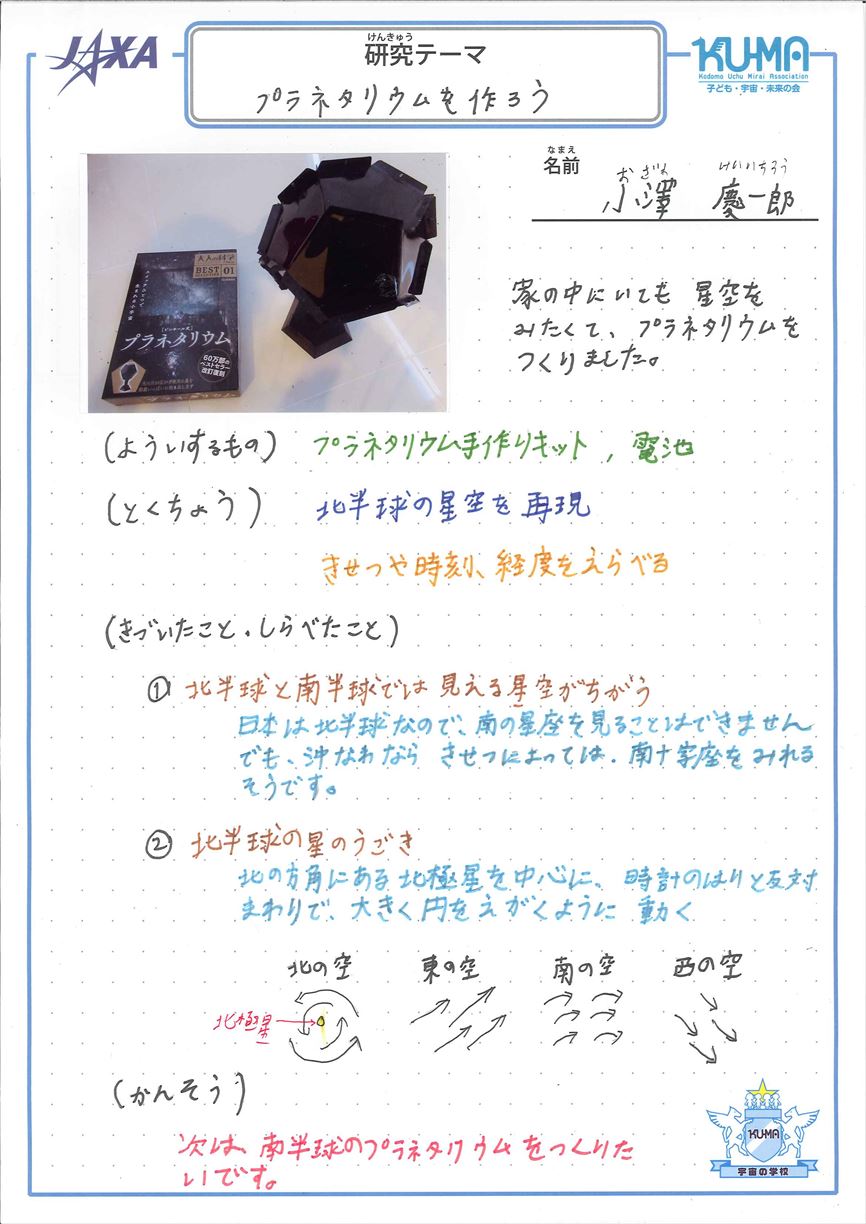 JAXA
けんきゅう
研究テーマ
プラネタリウムを作ろう
KU-MA
Kodomo Uchu Mirai Association
子ども・宇宙・未来の会
なまえ
名前
おざわ けいいちろう
小澤 慶一郎
大人の科学
BEST
01
プラネタリウム
60万部の
ベストセラー
改訂復刻
家の中にいても 星空を
みたくて、プラネタリウムを
つくりました。
(よういするもの) プラネタリウム手作りキット, 電池
(とくちょう) 北半球の星空を再現
きせつや時刻、経度をえらべる
(きづいたこと・しらべたこと)
① 北半球と南半球では見える星空がちがう
日本は北半球なので、南の星座を見ることはできません
でも、沖なわなら きせつによっては、南十字座をみれる
そうです。
② 北半球の星のうごき
北の方角にある北極星を中心に、時計のはりと反対
まわりで、大きく円をえがくように 動く
北の空 東の空 南の空 西の空
北極星
(かんそう)
次は、南半球のプラネタリウムをつくりた
いです。
KU-MA
宇宙の学校